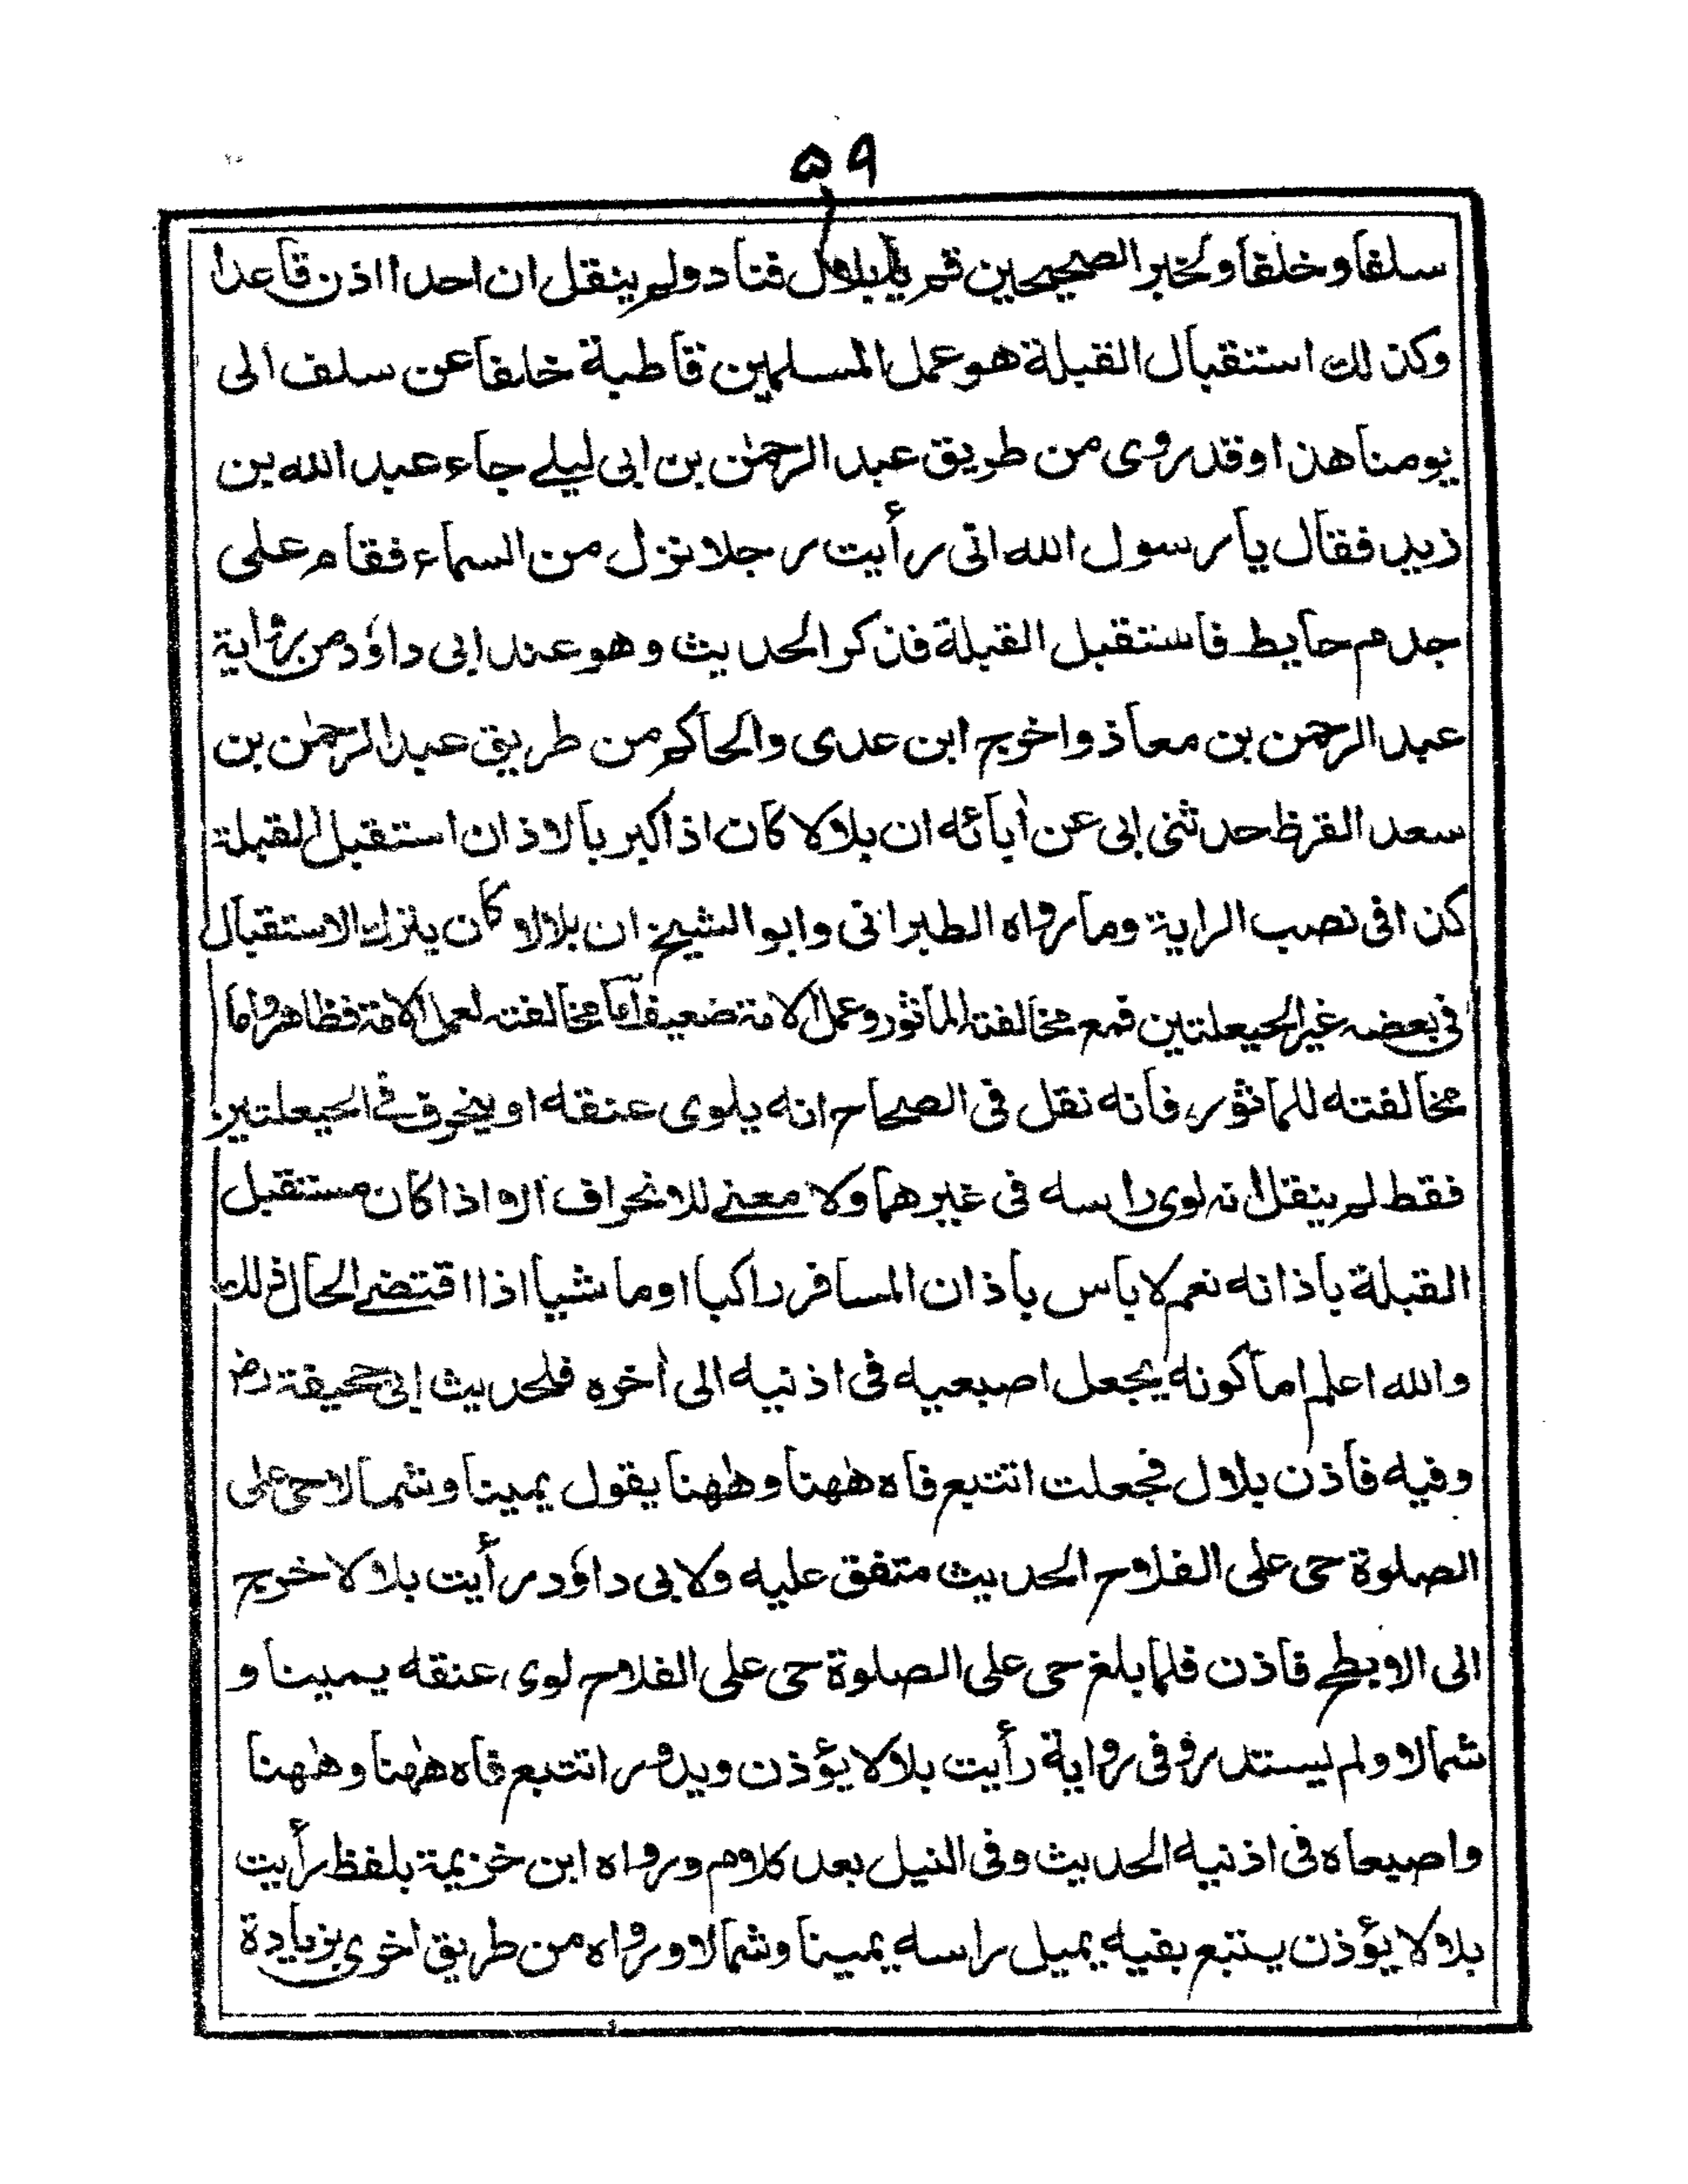 ۵۹
سلفا وخلفا ولخبر الصحيحين قم يا بلال فناد ولم ينقل ان احدا اذن قاعدا
وكذلك استقبال القبلة هو عمل المسلمين قاطبة خلفا عن سلف الى
يومنا هذا وقد روى من طريق عبد الرحمٰن بن ابى ليلے جاء عبد الله بن
زيد فقال يا رسول الله انى رأيت رجلا نزل من السماء فقام على
جدم حايط فاستقبل القبلة فذكر الحديث وهو عند ابى داؤد من رواية
عبد الرحمن بن معاذ واخرج ابن عدى والحاكم من طريق عبد الرحمٰن بن
سعد القرظ حدثنى ابى عن أبائه ان بلالا كان اذا كبر بالاذان استقبل القبلة
كذا فى نصب الراية وما رواه الطبرانى وابو الشيخ ان بلالا كان يترك الاستقبال
فى بعضه غير الحيعلتين فمع مخالفته الماثور وعمل الامة ضعيف اما مخالفته لعمل الامة فظاهر واما
مخالفته للماثور فانه نقل فى الصحاح انه يلوى عنقه او ينحرف فى الحيعلتين
فقط لم ينقل انه لوى راسه فى غيرهما ولا معنے للانحراف الا اذا كان مستقبل
القبلة باذانه نعم لا باس باذان المسافر راكبا او ماشيا اذا اقتضے الحال ذلك
والله اعلم اما كونه يجعل اصبعيه فى اذنيه الى أخره فلحديث ابى جحيفة رض
وفيه فاذن بلال فجعلت اتتبع فاه هٰهنا وهٰهنا يقول يمينا وشمالا حى على
الصلوة حى على الفلاح الحديث متفق عليه ولابى داؤد رأيت بلالا خرج
الى الابطح فاذن فلما بلغ حى على الصلوة حى على الفلاح لوى عنقه يمينا و
شمالا ولم يستدر وفى رواية رأيت بلالا يؤذن ويدور اتتبع فاه هٰهنا وهٰهنا
واصبعاه فى اذنيه الحديث وفى النيل بعد كلام ورواه ابن خزيمة بلفظ رأيت
بلالا يؤذن يتتبع بفيه يميل راسه يمينا وشمالا ورواه من طريق اخرى بزيادة